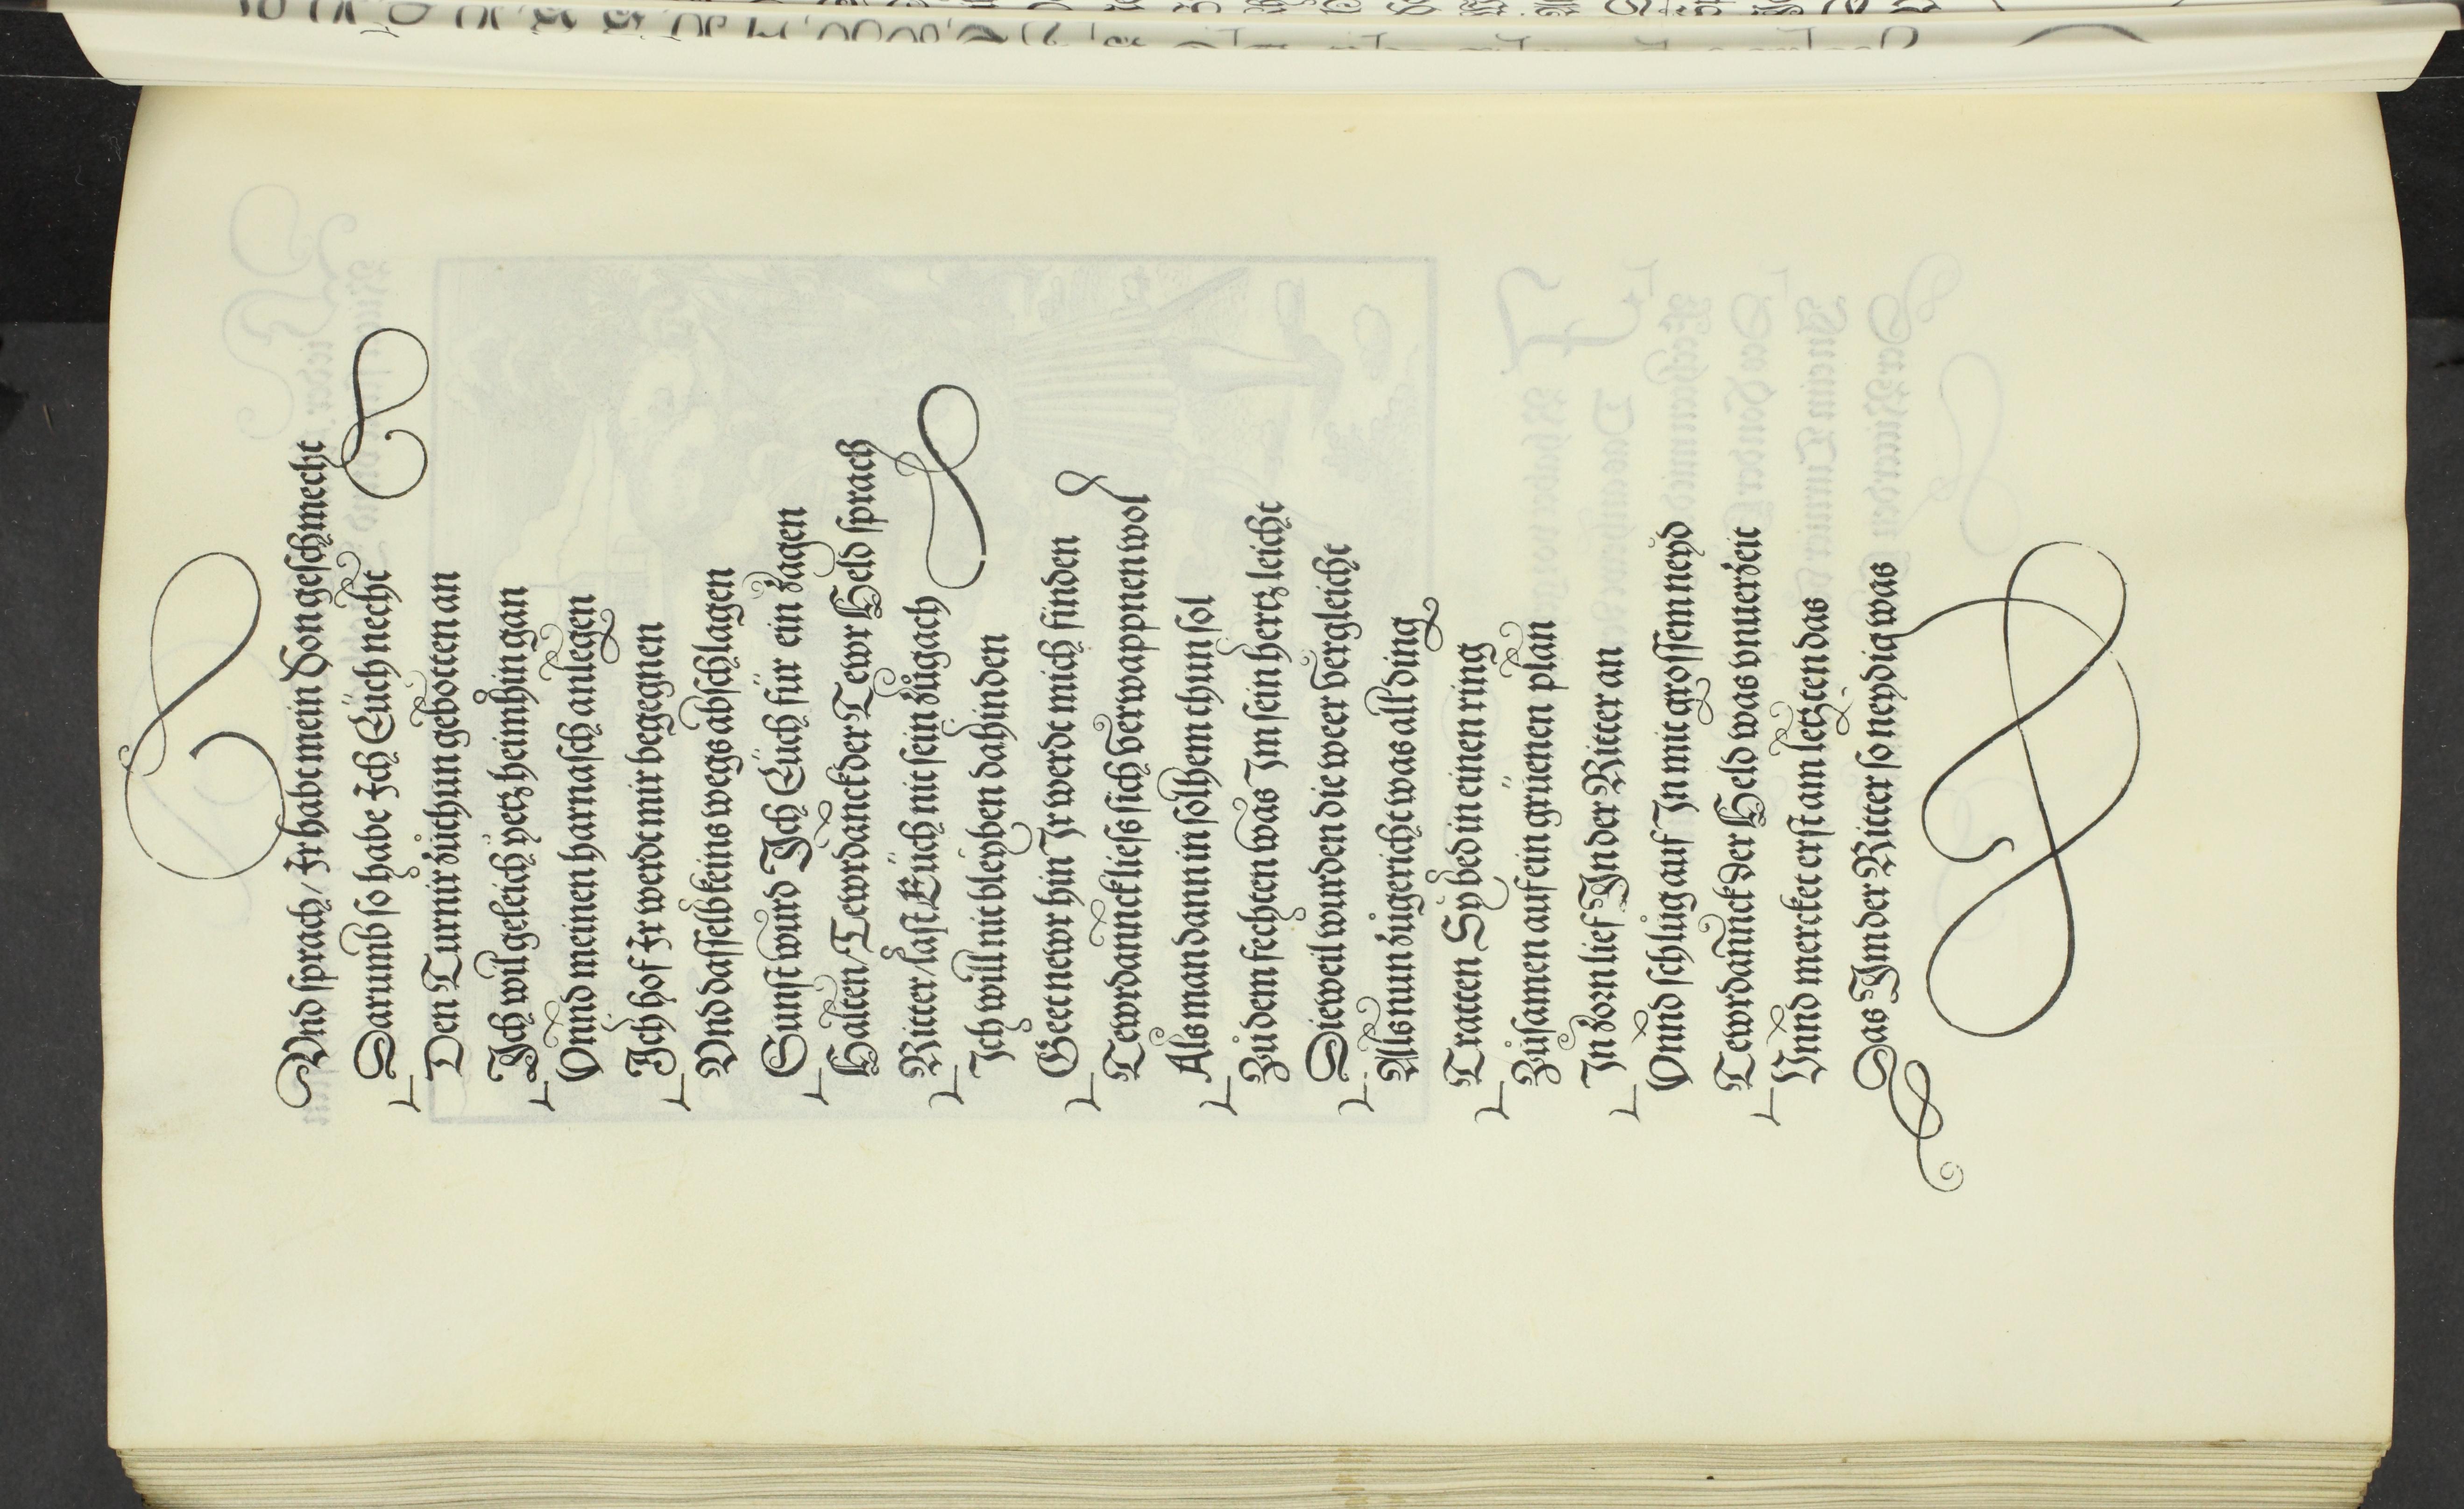 Vnd sprach/ Ir habt mein Son geschmecht
Darumb so habe Ich Eüch necht
Den Turnir zůthun gebotten an
Ich wil geleich yetz heimhin gan
Vnnd meinen harnasch anlegen
Ich hof Ir werdt mir begegnen
Vnd dasselb keins wegs abschlagen
Sunst wurd Ich Eüch für ein zagen
Halten/ Tewrdanck der Tewr Held sprach
Ritter/ last Eüch nit sein zů gach
Ich will nit bleyben dahinden
Geet newr hin Ir werdt mich finden
Tewrdannck liess sich verwappnen wol
Als man dann in sölhem thun sol
Zů dem fechten was Im sein hertz leicht
Dieweil wurden die weer vergleicht
Als nun zůgericht was all ding
Tratten Sy bed in einen ring
Zůsamen auf ein grüenen plan
In zorn lief In der Ritter an
Vnnd schlůg auf In mit grossem neyd
Tewrdannck der Held was vnuerzeit
Vnnd mercket erst am letzten das
Das Im der Ritter so neydig was